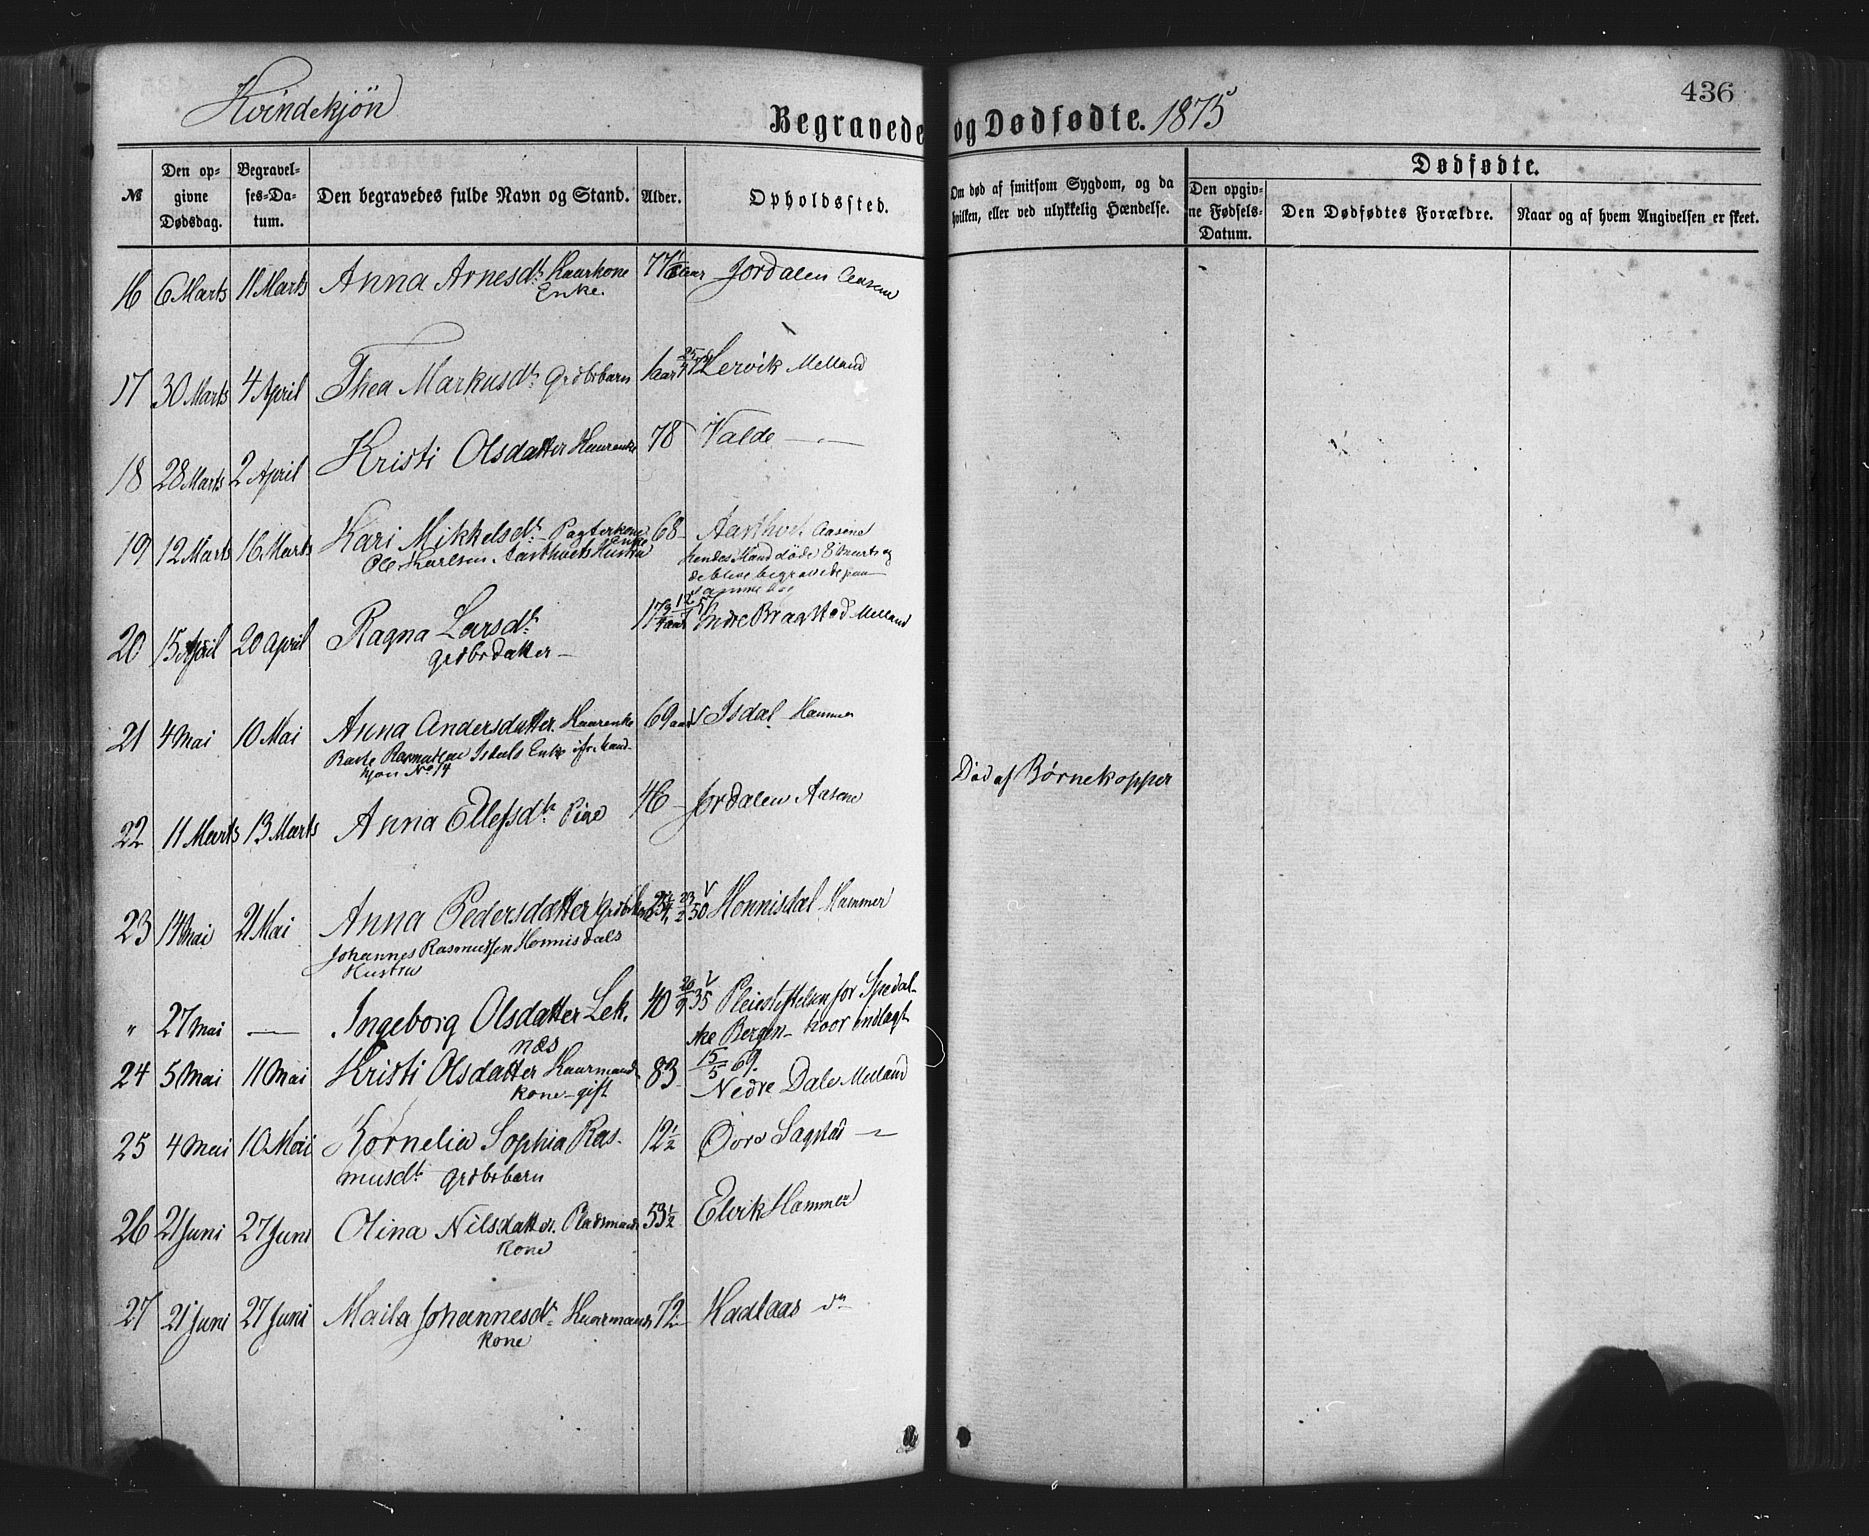 Kvindekjøn
Begravede og Dødfødte. 1875
436
№
Den opgivne Dødsdag.
Begravelses-Datum.
Den begravedes fulde Navn og Stand.
Alder.
Opholdssted.
Om død af smitsom Sygdom, og da hvilken, eller ved ulykkelig Hændelse.
Dødfødte.
Den opgivne Fødsels-Datum.
Den Dødfødtes Forældre.
Naar og af hvem Angivelsen er skeet.
16 6 Marts 11 Marts Anna Arnesdtr. Kaarkone 77 Aar Jordalen Aasene
Enke.
17 30 Marts 4 April Thea Markusdtr. Grdbrbarn 1 aar Lervik Melland
18 28 Marts 2 April Kristi Olsdatter Kaarenke 78 Valde —
19 12 Marts 16 Marts Kari Mikkelsdtr. Pagterkone 68 Aasthvet. Aasene
Enke
Ole Karlsen Aasthvets Hustru
hendes Mand døde 8 Marts og
de bleve begravede paa
samme Dag
20 15 April 20 April Ragna Larsdtr. 17 aar Indre Bragstad Melland
Grdbrdatter —
21 4 Mai 10 Mai Anna Andersdatter. Kaarenke 69 aar Isdal Hammer
Rasmussen Isdals Enke cfr. Mand-
kjøn No 14
22 11 Marts 13 Marts Anna Ellefsdtr Pige 46 — Jordalen Aasene
Død af Børnekopper
23 14 Mai 21 Mai Anna Pedersdatter 23/2 50 Honnisdal Hammer
Johannes Rasmussen Honnisdals
Hustru
" 27 Mai — Ingeborg Olsdatter Lek- 40 20/9 35 Pleiestiftelsen for Spedal-
næs
ske Bergen — hvor indlagt
15/5 69.
24 5 Mai 11 Mai Kristi Olsdatter Kaarmand- 83 Nedre Dale Melland
kone — gift
25 4 Mai 10 Mai Kornelia Sophia Ras- 12 1/2 Øvre Sagstad —
musdtr. Grdbrbarn
26 21 Juni 27 Juni Olina Nilsdatter. Pladsmands 53 1/2 Elvik Hammer
kone
27 21 Juni 27 Juni Maila Johannesdtr. Kaarmands 72 Hadlaas do
kone